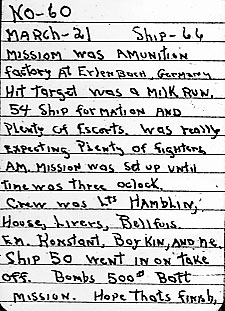 NO-60
MARCH-21 Ship-66
Mission was Amunition
factory At Erlenbach, Germany
Hit target was a Milk Run.
54 Ship formation and
Plenty of Escorts. was really
expecting Plenty of fighters
AM. Mission was set up until
time was three oclock.
Crew was Lts Hamblin,
House, Livers, Bellfuis.
Em. Konstant, Boykin, and me.
Ship 50 went in on take
off. Bombs 500# Batt
Mission. Hope thats finish.